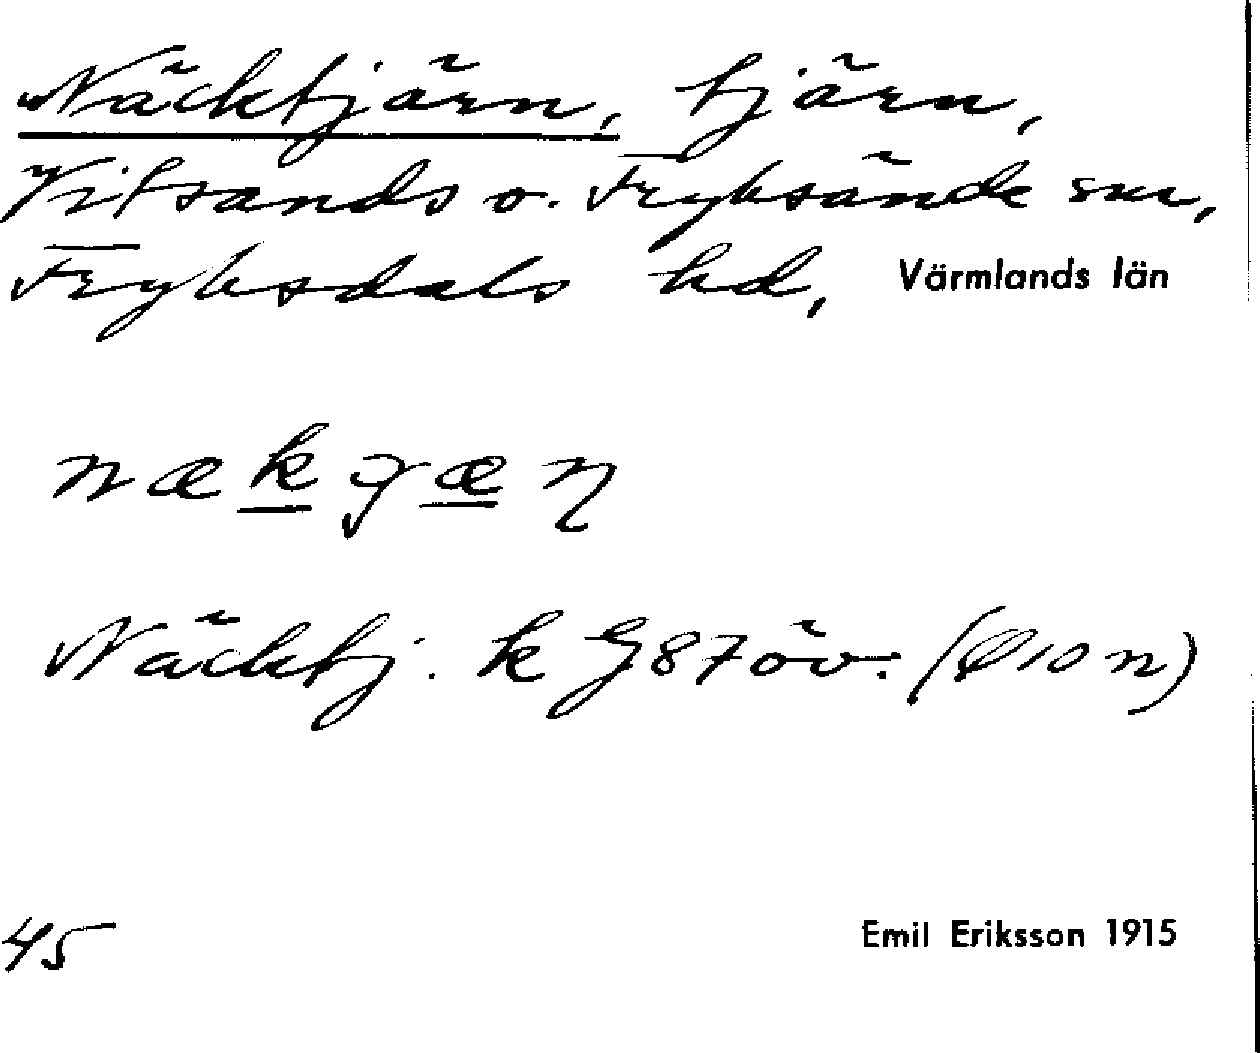 Näcktjärn, tjärn,
Vitsands o. Fryksände snr,
Fryksdals hd, Värmlands län
nækgæɳ
Näcktj. k G87öv. (Ø10n)
45
Emil Eriksson 1915